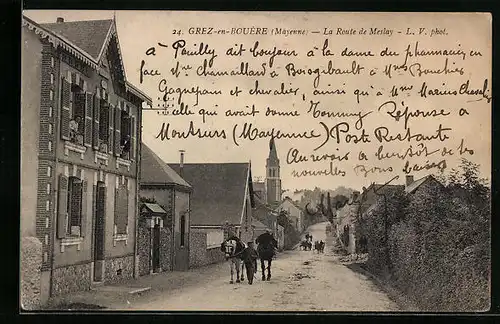 24. GREZ-en-BOUÈRE (Mayenne) — La Route de Meslay - L. V. phot.
à Pouilly dit bonjour à la dame du pharmacien en
face Mme Chamaillard à Boisgibault à Mmes Bouchié
Gagnepain et chevalier, ainsi qu'à Mme Marius Chevalier
celle qui avait donné Tommy Réponse à
Montsurs (Mayenne) Poste Restante
Au revoir à bientôt de tes
nouvelles Bons baisers